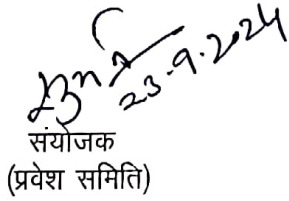 23.9.2024
संयोजक
(प्रवेश समिति)